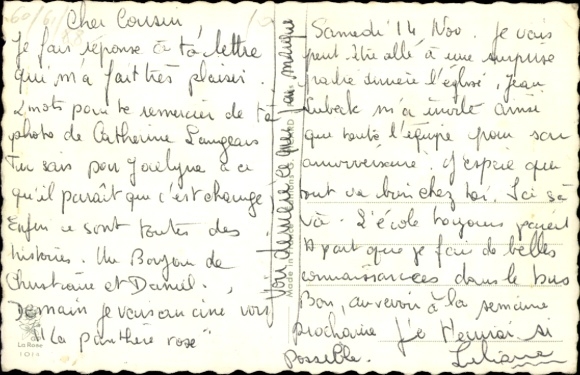 Cher Cousin
Je fais réponse à ta lettre
qui m'a fait très plaisir
2 mots pour te remercier de ta
photo de Catherine Langeais
Tu sais pour Jocelyne à ce
qu'il paraît que c'est changé
Enfin ce sont toutes des
histoires. Un Bonjour de
Christiane et Daniel.
Demain je vais au ciné voir
"La panthère rose"
La Rose
1014
Voir derrière ce que j'ai marqué
Made in
Samedi 14 Nov. Je vais
peut être allé à une surprise
partie derrière l'église, Jean
Lubeck m'a invité ainsi
que toute l'équipe pour son
anniversaire. J'espère que
tout va bien chez toi. Ici ça
va. L'école toujours pareil
A part que je fais de belles
connaissances dans le bus
Bon, au revoir à la semaine
prochaine Je si
possible. Liliane